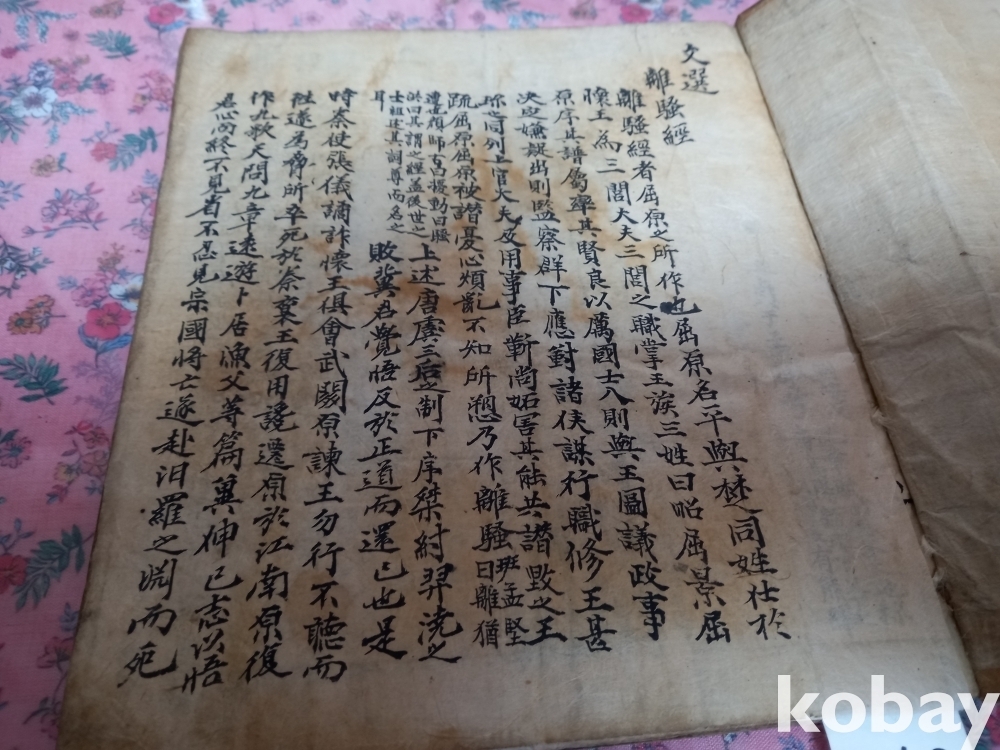 文選
離騷經
離騷經者屈原之所作也屈原名平與楚同姓仕於
懷王為三閭大夫三閭之職掌王族三姓曰昭屈景屈
原序其譜屬率其賢良以厲國士入則與王圖議政事
决定嫌疑出則監察群下應對諸侯謀行職修王甚
珎之同列上官大夫及用事臣靳尚妬害其能共譖毁之王
疏屈原屈原被譖憂心煩亂不知所愬乃作離騷班孟堅曰離猶
遭也顔師古曰擾動曰騷洪曰其謂之經盖後世之上述唐虞三后之制下序桀紂羿澆之
士祖述其詞尊而名之耳敗冀君覺悟反於正道而還己也是
時秦使張儀譎詐懷王俱會武關原諫王勿行不聽而
往遂為脅所卒死於秦襄王復用讒遷原於江南原復
作九歌天問九章遠遊卜居漁父等篇冀伸己志以悟
君心而終不見省不忍見宗國將亡遂赴汨羅之淵而死
kobay